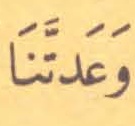 وَعَدتَّنَا